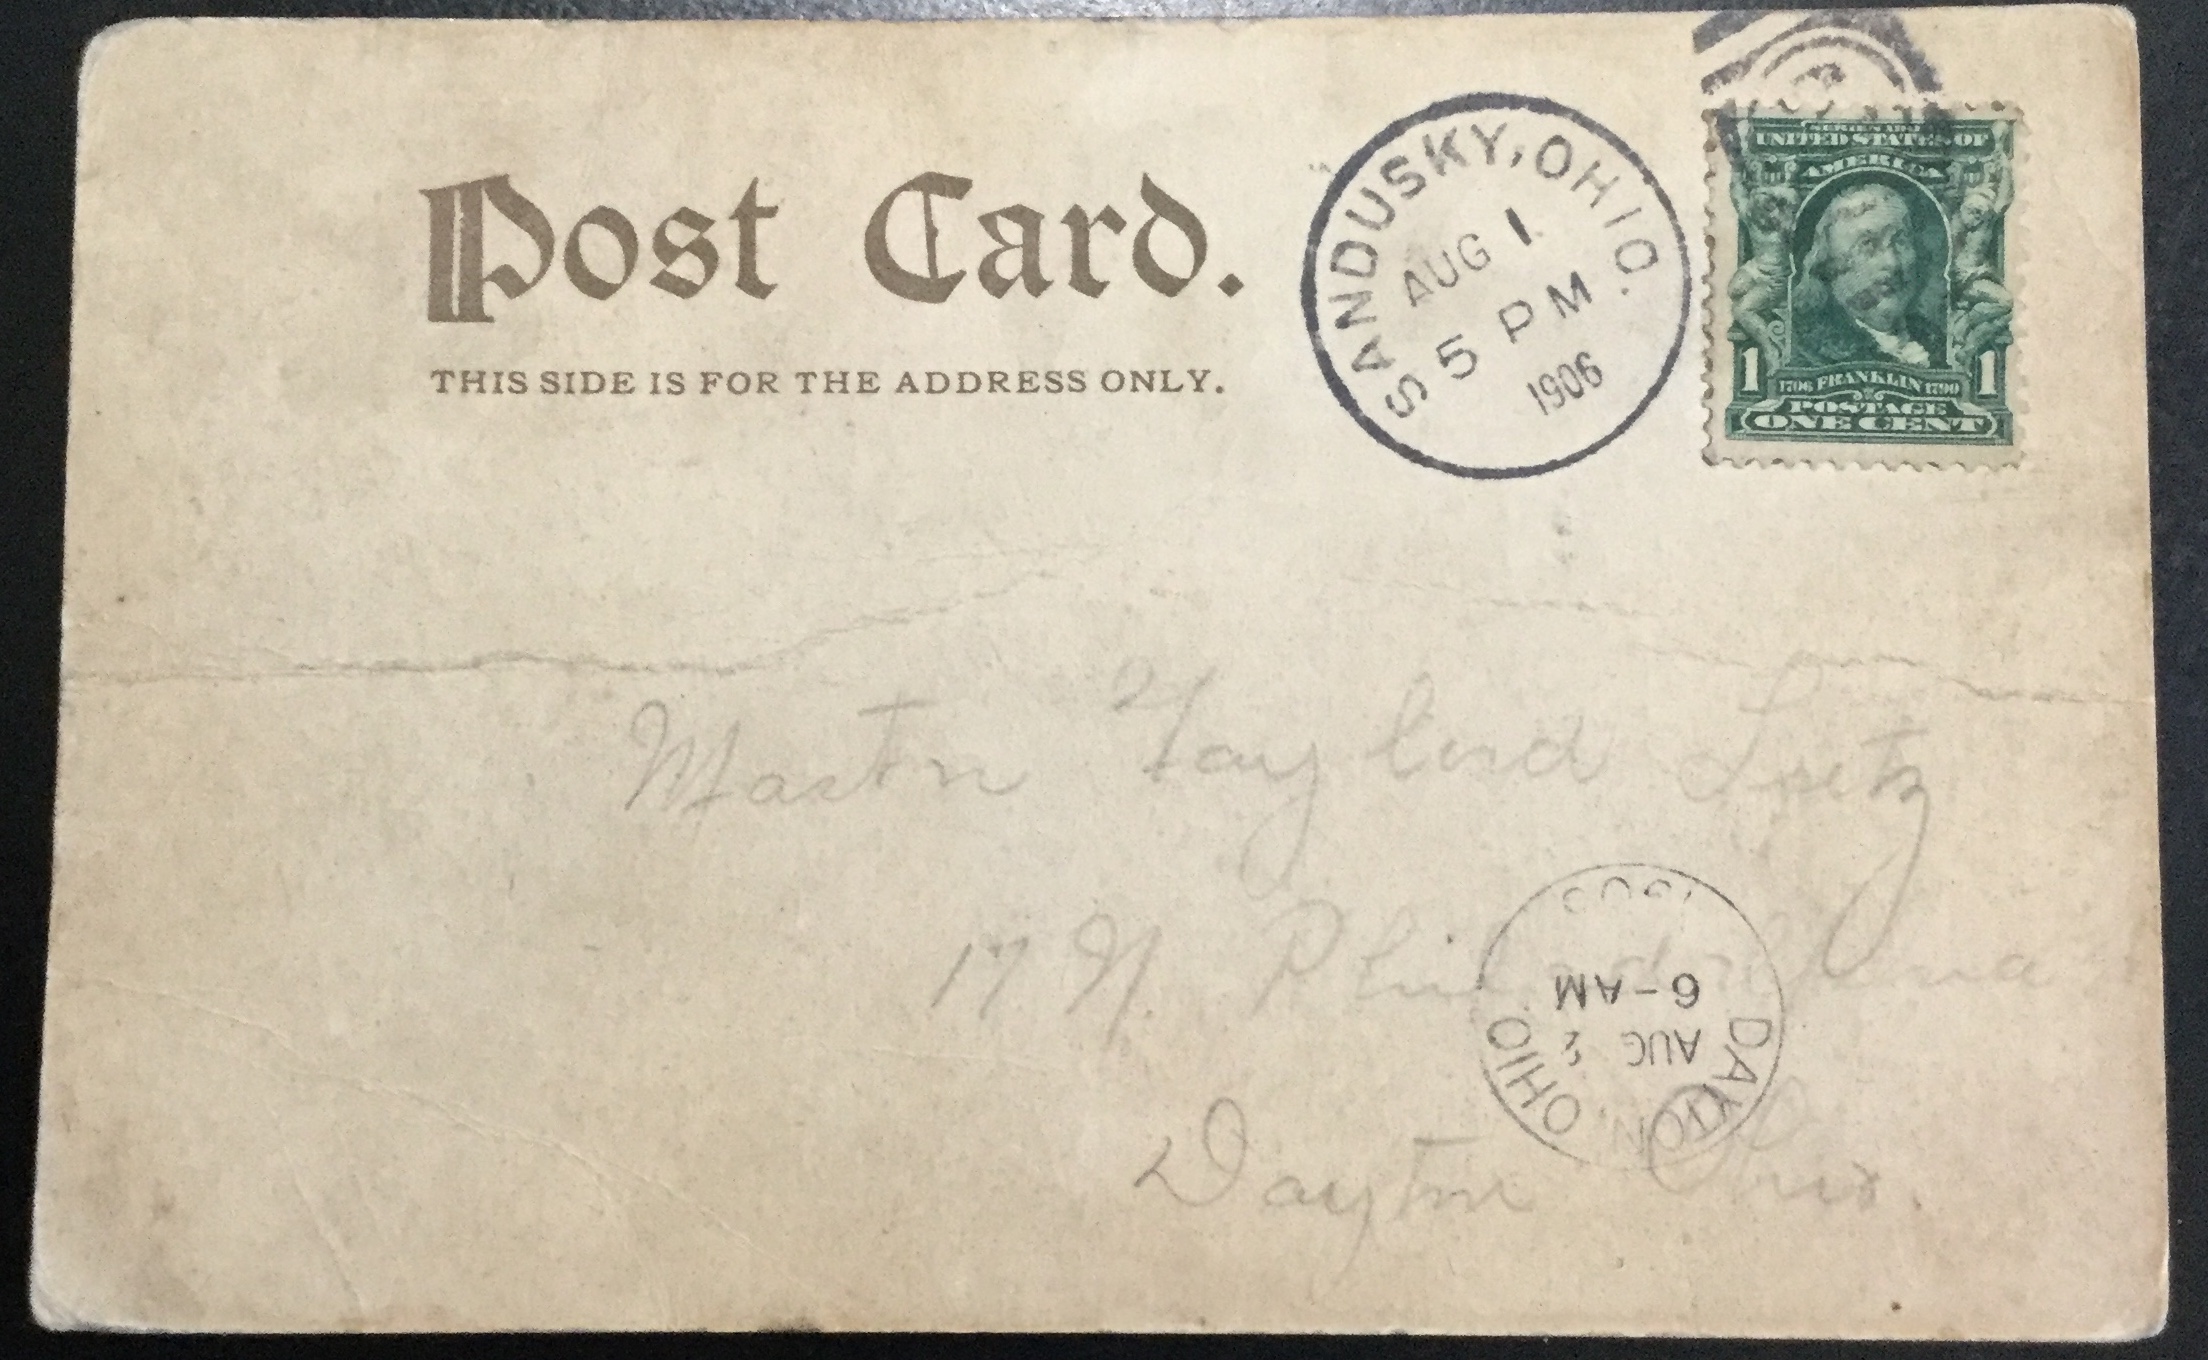 Post Card.
THIS SIDE IS FOR THE ADDRESS ONLY.
SANDUSKY, OHIO.
AUG 1
5 PM
1906
UNITED STATES OF
AMERICA
1 1706 FRANKLIN 1790 1
POSTAGE
ONE CENT
Gaylord
17 N.
Dayton Ohio.
DAYTON OHIO
AUG 2
6-AM